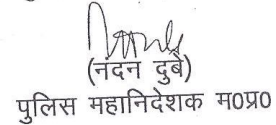 (नंदन दुबे)
पुलिस महानिदेशक म0प्र0